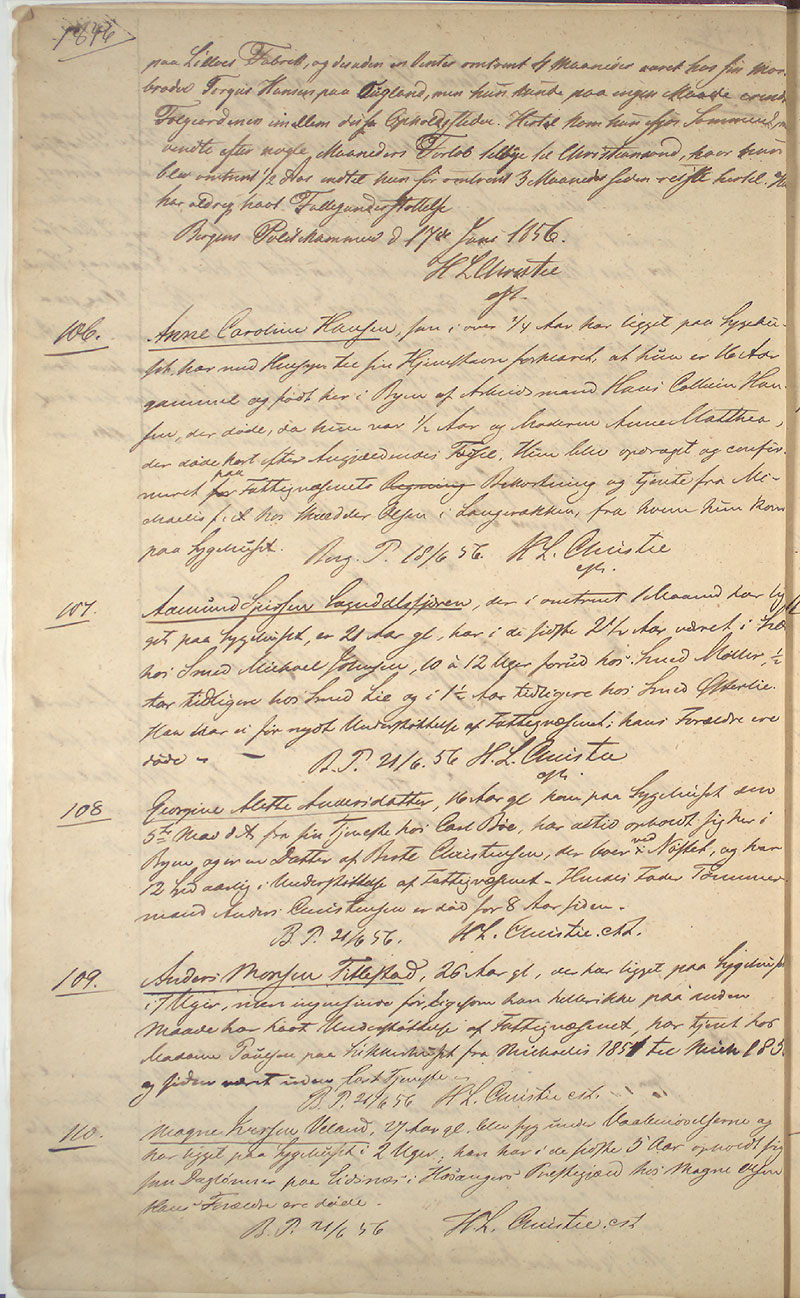 1856
paa Lilleøes Fabrik, og desuden en Vinter omtrent 4 Maaneder været hos sin Mor-
broder Torgus Hansen paa Fugland, men hun kunde paa ingen Maade erindre
Følgeordenen imellem disse Opholdssteder. Hertil kom hun
vendte efter nogle Maaneders Forløb tilbage til Christiansund, hvor hun
blev omtrent 1/2 Aar indtil hun for omtrent 3 Maaneder siden reiste hertil.
har aldrig havt Fattigunderstøttelse
Bergens Politikammer d 17de Juni 1856.
H L Christie
cst.
106. Anne Caroline Hansen, som i over 3/4 Aar har ligget paa Sygehu-
set, har med Hensyn til sin Hjemstavn forklaret, at hun er 16 Aar
gammel og født her i Byen af Arbeidsmand Hans Han-
sen, der døde, da hun var 1/2 Aar og Moderen Anne Matthea,
der døde kort efter Angjældendes Fødsel. Hun blev opdraget og confir-
meret for paa Fattigvæsenets Regning Bekostning og tjente fra Mi-
chaelis f. A. hos Skrædder Olsen i Langerækken, fra hvem hun kom
paa Sygehuset. Berg. P. 18/6 56. H L. Christie
cst.
107. Aamund Iversen Sogndalsfjøren, der i omtrent 1 Maaned har lig-
get paa Sygehuset, er 21 Aar gl, har i de sidste 2 1/2 Aar været i Lære
hos Smed Michael Johnsen, 10 à 12 Uger forud hos Smed Møller, 1/2
Aar tidligere hos Smed Lie og i 1 1/2 Aar tidligere hos Smed Østerlie.
Han har ei før nydt Understøttelse af Fattigvæsenet; hans Forældre ere
døde - B. P. 21/6. 56 H. L. Christie
cst.
108 Georgine Alette Andersdatter, 16 Aar gl kom paa Sygehuset den
5te Mai d. A. fra sin Tjeneste hos Carl Bøe, har altid opholdt sig her i
Byen, og er en Datter af Berte Christensen, der boer ved Nøstet, og har
12 aarlig i Understøttelse af Fattigvæsenet - Hendes Fader Tømmer-
mand Anders Christensen er død for 8 Aar siden -
B P. 21/6 56. H L. Christie. cst.
109. Anders Monsen Titlestad, 26 Aar gl, der har ligget paa Sygehuset
i 7 Uger, men ingensinde før, ligesom han hellerikke paa anden
Maade har havt Understøttelse af Fattigvæsenet, har tjent hos
Madame Paulson paa Sukkerhuset fra Michaelis 1851 til Mich 185
og siden været uden fast Tjeneste -
B. P. 21/6 56 H L. Christie cst.
110. Magne Iversen Veland, 27 Aar gl, blev syg under Vaabenøvelserne og
har ligget paa Sygehuset i 2 Uger; han har i de sidste 5 Aar opholdt sig
som Daglønner paa Eidsnæs i Hosangers Præstegjæld hos Magne Olsen
Hans Forældre ere døde.
B. P. 21/6 56 H L. Christie. cst